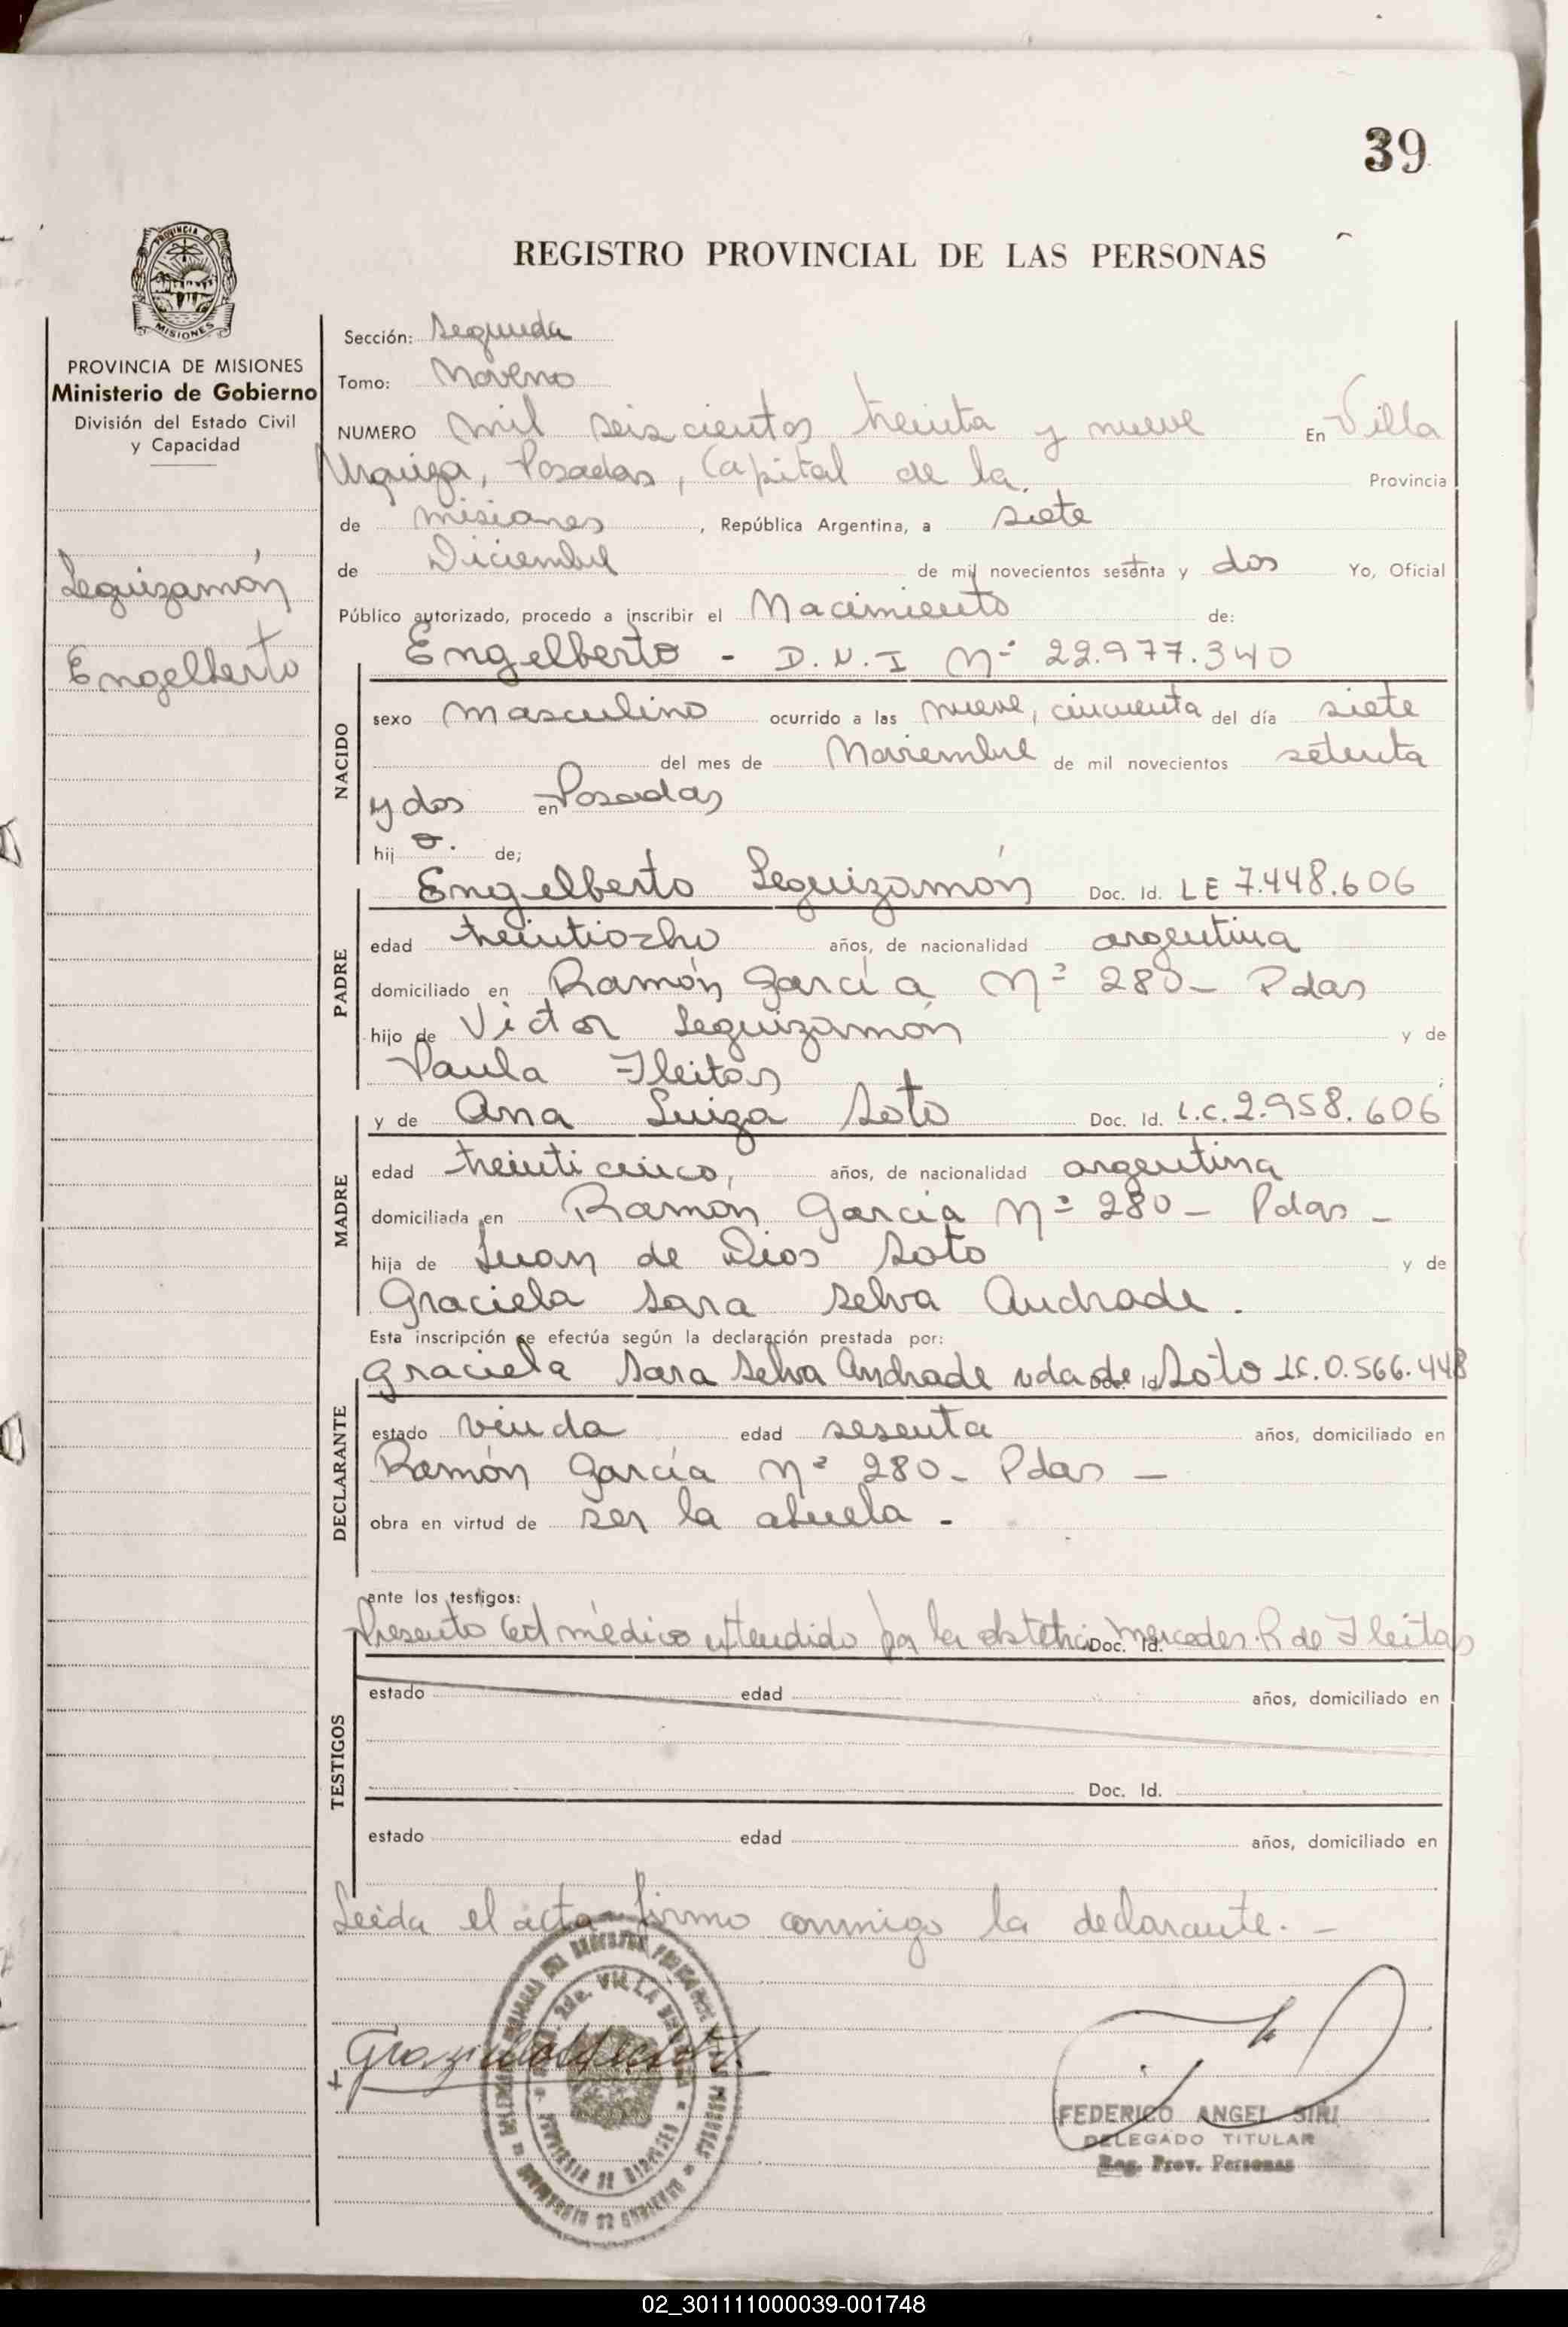 39
REGISTRO PROVINCIAL DE LAS PERSONAS
PROVINCIA DE MISIONES
Ministerio de Gobierno
División del Estado Civil
y Capacidad
Leguizamón
Engelberto
Sección: Segunda
Tomo: Noveno
NUMERO mil seiscientos treinta y nueve En Villa
Urquiza, Posadas, Capital de la Provincia
de misiones, República Argentina, a siete
de Diciembre de mil novecientos sesenta y dos Yo, Oficial
Público autorizado, procedo a inscribir el Nacimiento de:
Engelberto - D.N.I Nº 22.977.340
NACIDO
sexo masculino ocurrido a las nueve, cincuenta del día siete
del mes de Noviembre de mil novecientos setenta
y dos en Posadas
hijo. de;
Engelberto Leguizamón Doc. Id. LE 7.448.606
PADRE
edad treintiocho años, de nacionalidad argentina
domiciliado en Ramón García Nº 280- Pdas
hijo de Victor Leguizamón y de
Paula Fleitas
y de Ana Luiza Soto Doc. Id. L.C. 2.958.606
MADRE
edad treinticinco, años, de nacionalidad argentina
domiciliada en Ramon Garcia Nº 280 - Pdas -
hija de Juan de Dios Soto y de
Graciela Sara Selva Andrade.
Esta inscripción se efectúa según la declaración prestada por:
Graciela Sara Selva Andrade vda de Soto Doc. Id. LC. 0.566.448
DECLARANTE
estado viuda edad sesenta años, domiciliado en
Ramón García Nº 280- Pdas -
obra en virtud de ser la abuela -
ante los testigos:
Presento Cert médico extendido por la obstetricia Doc. Id. Mercedes R de Fleitas
TESTIGOS
estado edad años, domiciliado en
Doc. Id.
estado edad años, domiciliado en
Leida el acta firmo conmigo la declarante. -
FEDERICO ANGEL SIRI
DELEGADO TITULAR
Reg. Prov. Personas
02_301111000039-001748